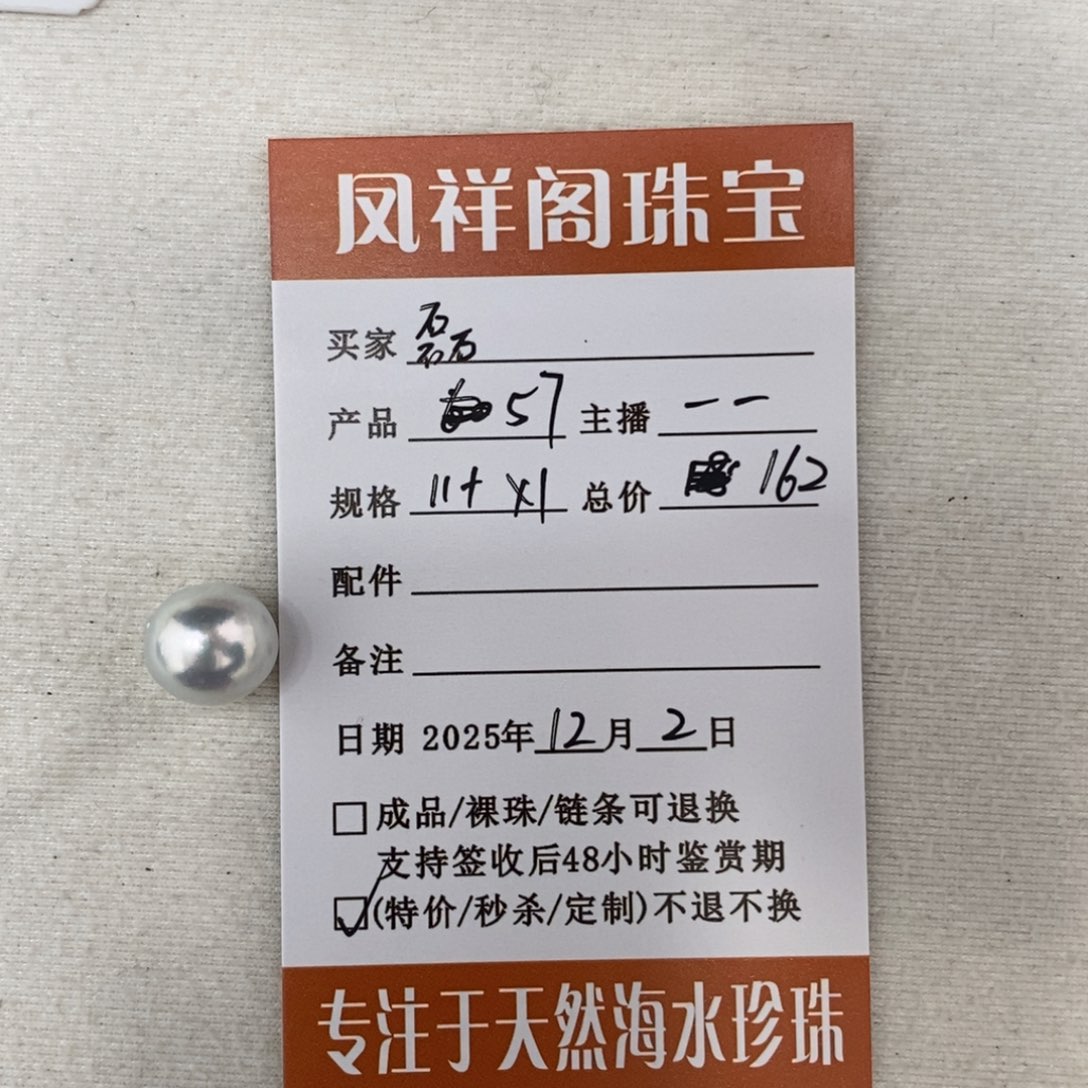 凤祥阁珠宝
买家 磊
产品 57 主播 一一
规格 11+ x1 总价 162
配件
备注
日期 2025年12月2日
成品/裸珠/链条可退换
支持签收后48小时鉴赏期
(特价/秒杀/定制)不退不换
专注于天然海水珍珠